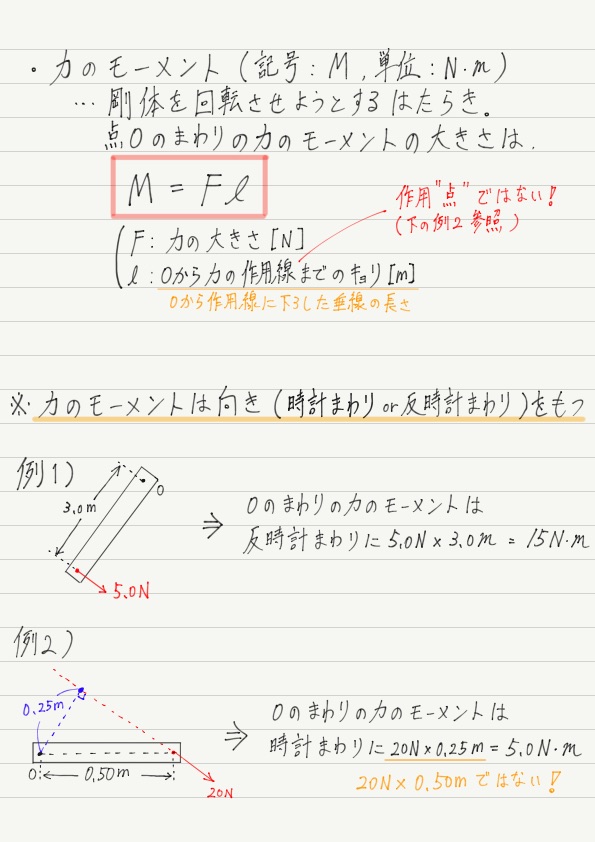 ・力のモーメント(記号:M,単位:N・m)
…剛体を回転させようとするはたらき。
点Oのまわりの力のモーメントの大きさは,
M = Fl
作用"点"ではない!
(下の例2参照)
F:力の大きさ[N]
l:Oから力の作用線までのキョリ[m]
Oから作用線に下ろした垂線の長さ
※力のモーメントは向き(時計まわりor反時計まわり)をもつ
例1)
O
3.0m
5.0N
⇒ Oのまわりの力のモーメントは
反時計まわりに5.0N×3.0m = 15N・m
例2)
0.25m
O
0.50m
20N
⇒ Oのまわりの力のモーメントは
時計まわりに20N×0.25m = 5.0N・m
20N×0.50mではない!